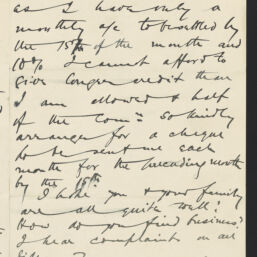 as I have only a
monthly a/c to be settled by
the 15th of the month and
10% I cannot afford to
give longer credit than
I am allowed & half
of the Com: So kindly
arrange for a cheque
to be sent me each
month for the preceding month
by the 15th
I hope you & your family
are all quite well!
How do you find business?
I hear complaints on all